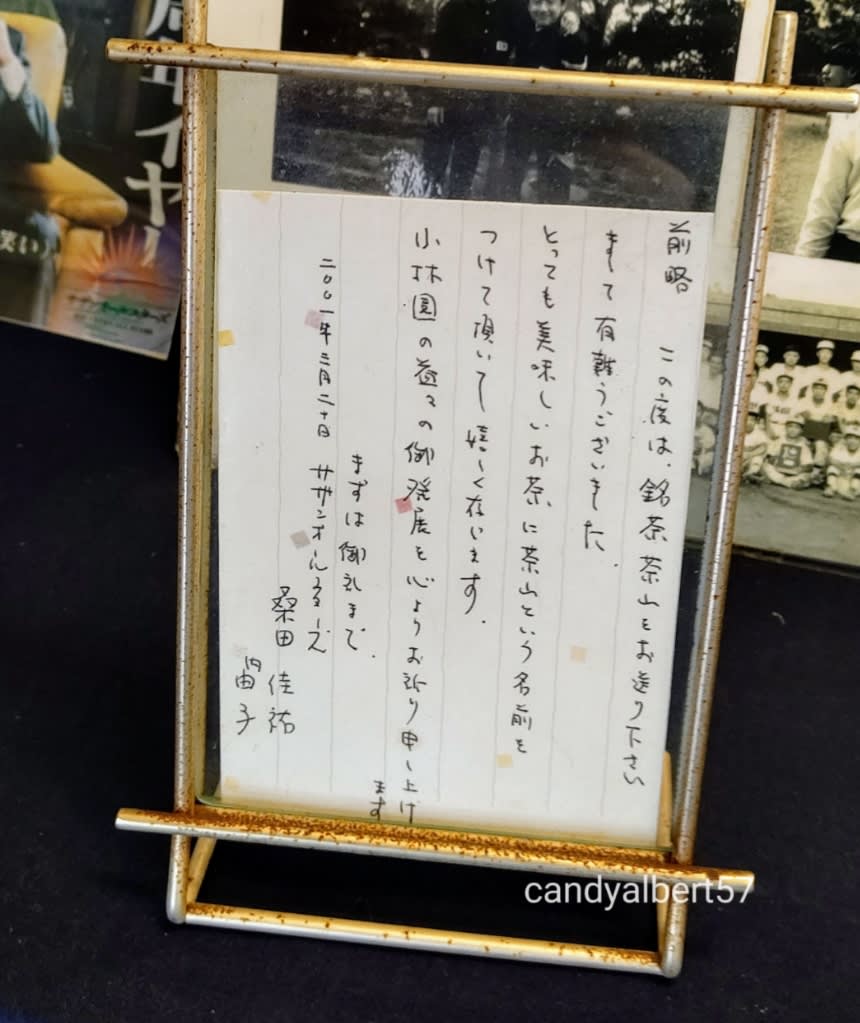 前略
この度は、銘茶茶山をお送り下さい
まして有難うございました。
とっても美味しいお茶に茶山という名前を
つけて頂いて嬉しく存じます。
小林園の益々の御発展を心よりお祈り申し上げ
ます
まずは御礼まで。
二〇〇一年三月二十日 サザンオールスターズ
桑田佳祐
内 由子
周年イヤー
笑い
candyalbert57